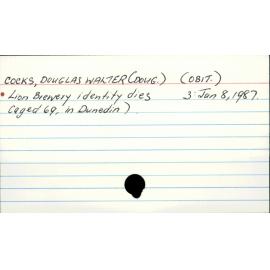 COCKS, DOUGLAS WALTER (DOUG.) (OBIT.)
• Lion Brewery identity dies 3 Jan 8, 1987
(aged 69, in Dunedin)